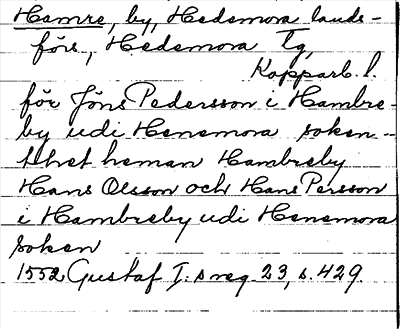 Hamre, by, Hedemora lands-
förs., Hedemora Tg,
Kopparb. l.
för Jöns Pedersson i Hambre-
by udi Henemora soken --
thet heman Hambreby
Hans Olsson och Hans Persson
i Hambreby udi Henemora
soken
1552 Gustaf I:s reg. 23, s. 429.